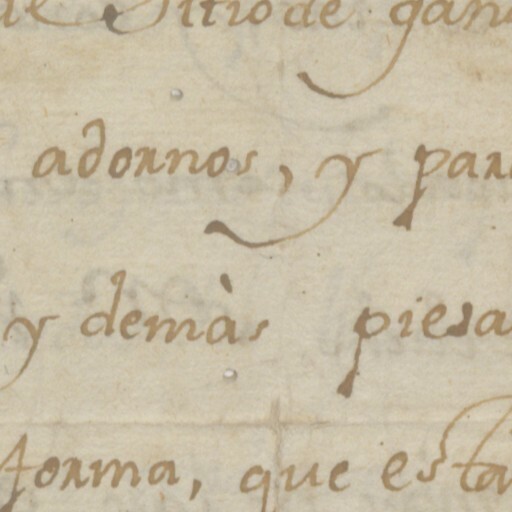 de Sitio de gana
adornos, y para
y demàs piesa
forma, que esta